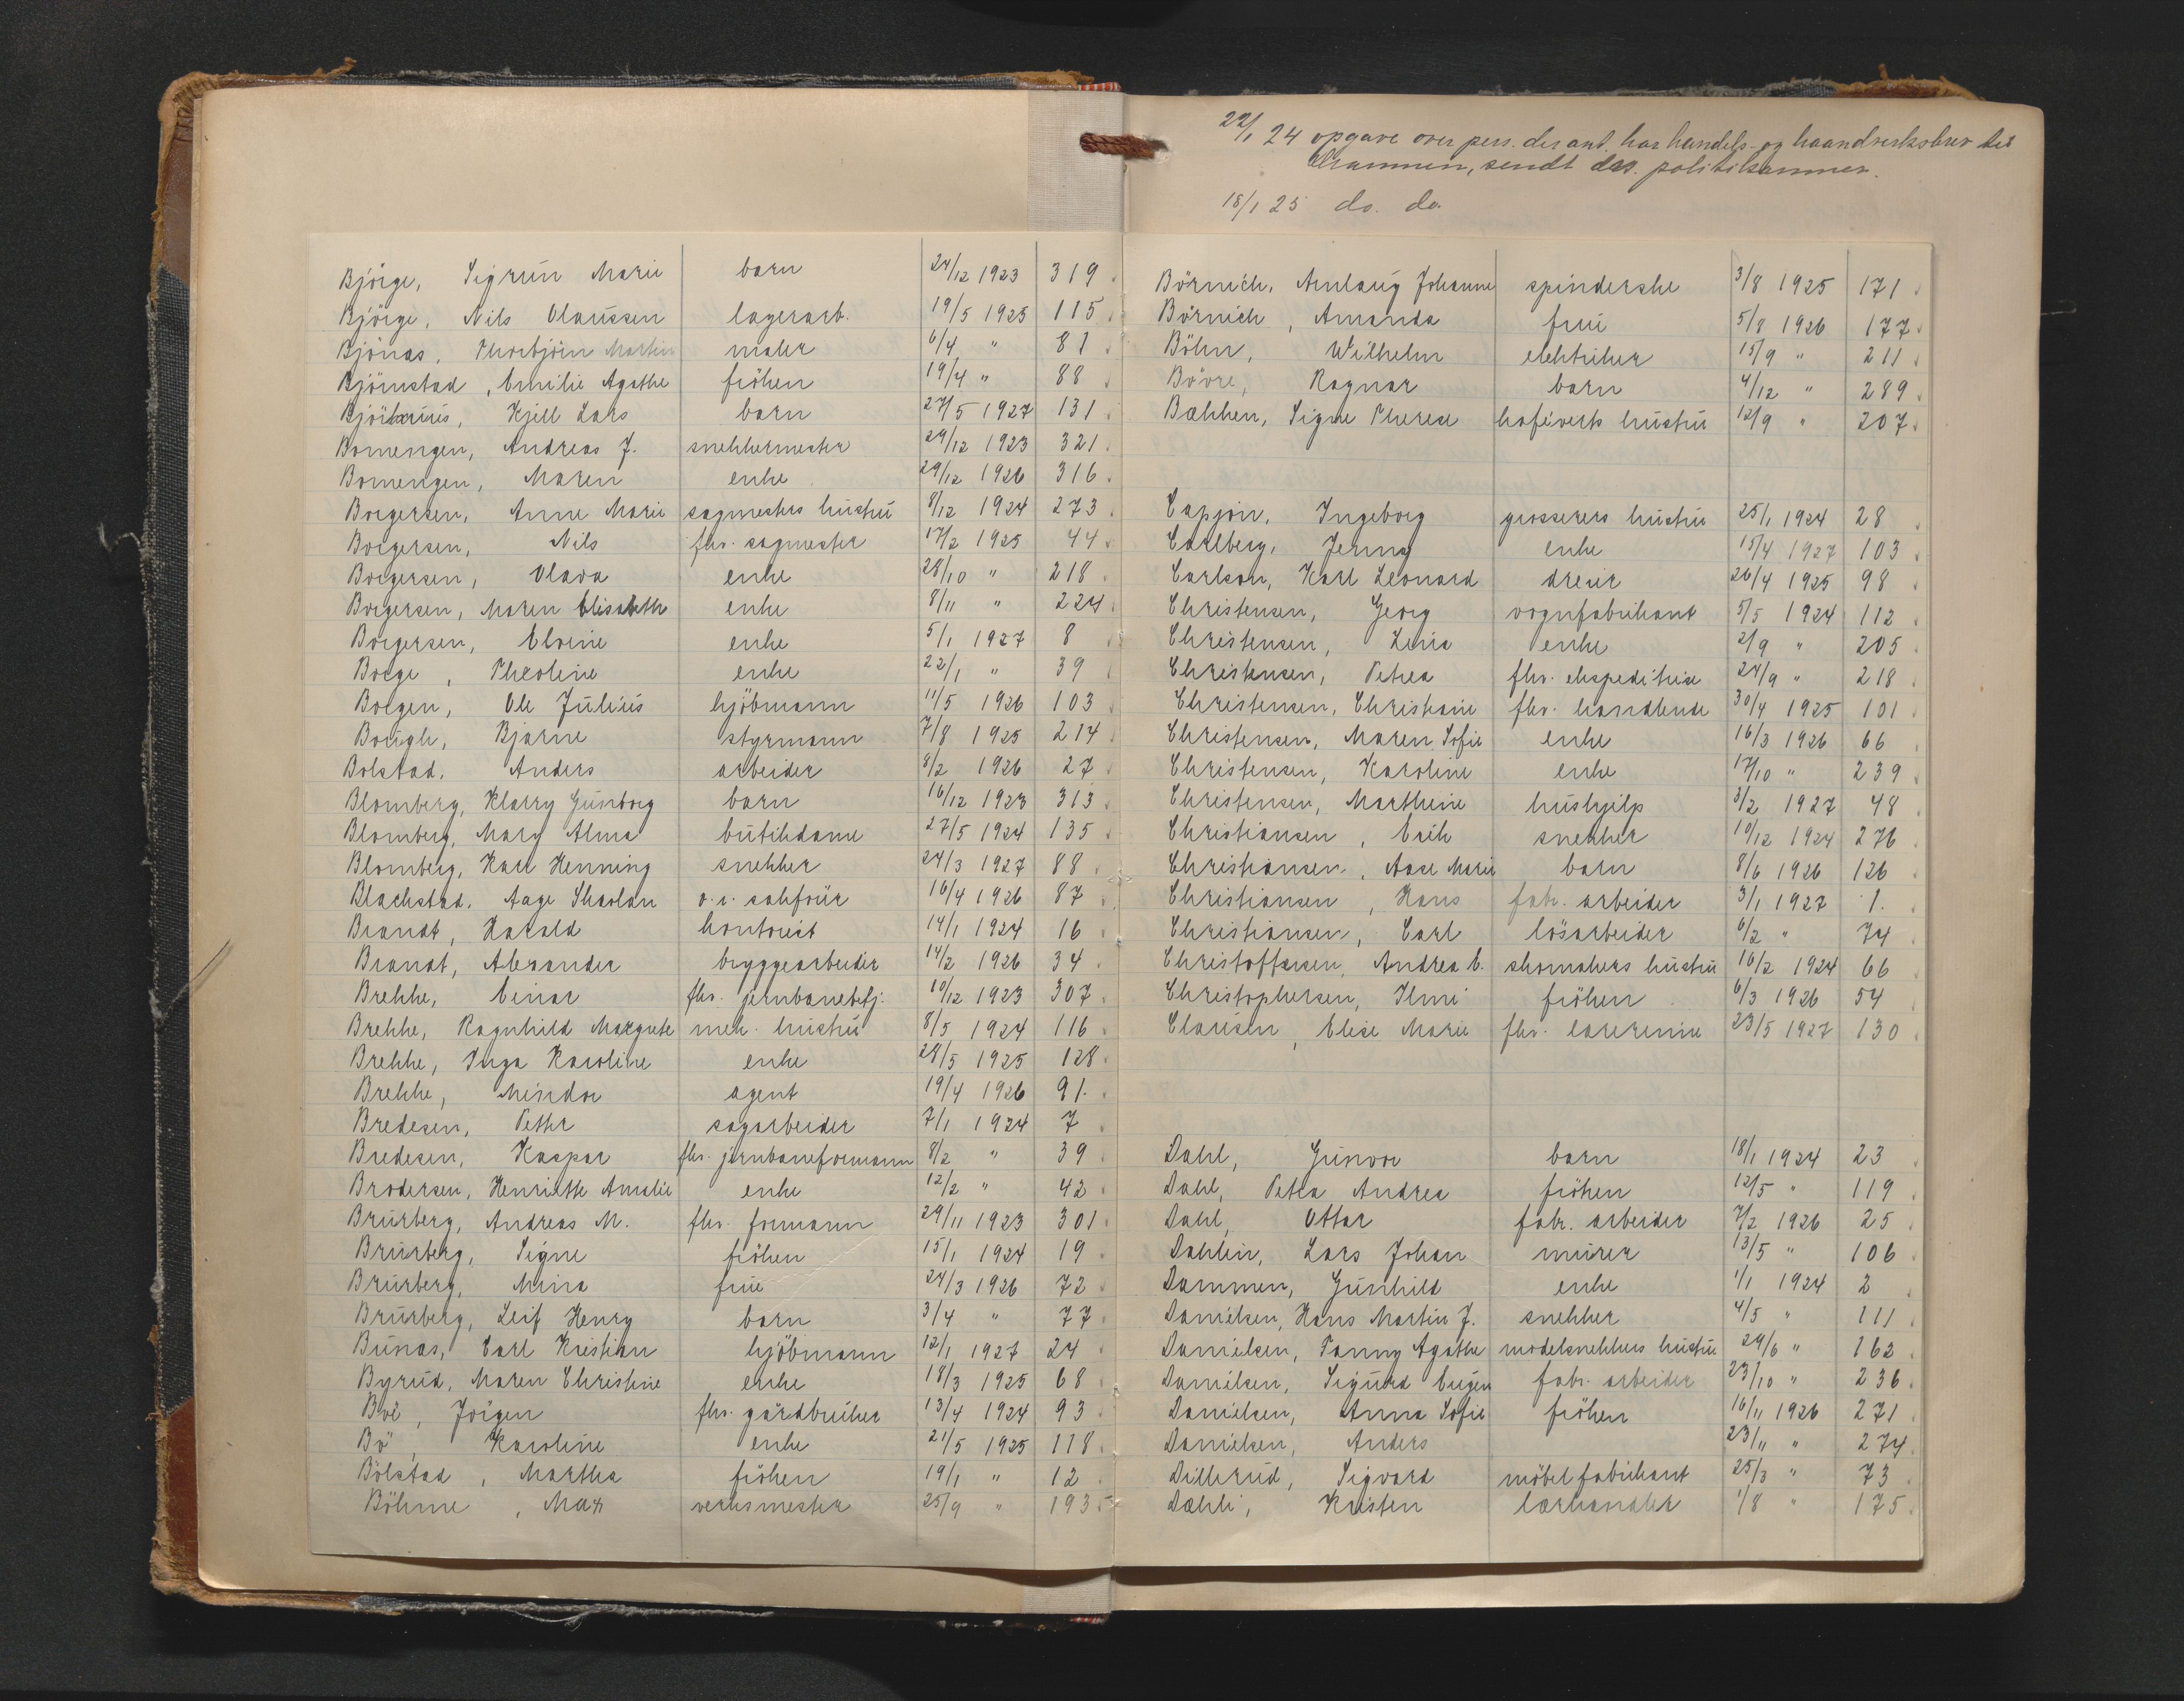 Björge, Sigrun Marie barn 24/12 1923 319
Björge, Nils Olaussen lagerarb. 19/5 1925 115
Bjönas, Thorbjörn Martin maler 6/4 " 81
Bjömstad, Emilie Agathe fröken 19/4 " 88
Kjell Lars barn 27/5 1927 131
Bomengen, Andreas J. snekkermester 29/12 1923 321
Bomengen, Maren enke 29/12 1926 316
Borgersen, Anne Marie sagmesters hustru 8/12 1924 273
Borgersen, Nils fhv. sagmester 17/2 1925 44
Borgersen, Olava enke 28/10 " 218
Borgersen, Maren Elisabeth enke 8/11 " 224
Borgersen, Elvine enke 5/1 1927 8
Borge, Theoline enke 22/1 " 39
Borgen, Ole Julius kjöbmann 11/5 1926 103
Bjarne styrmann 7/8 1925 214
Bolstad, Anders arbeider 8/2 1926 27
Blomberg, Klarry Gunborg barn 16/12 1923 313
Blomberg, Mary Alma butikdame 27/5 1924 135
Blomberg, Karl Henning snekker 24/3 1927 88
Blachstad, Aage o.r. sakförer 16/4 1926 87
Brandt, Harald kontorist 14/1 1924 16
Brandt, Alexander bryggearbeider 14/2 1926 34
Brekke, Einar fhv. jernbanebetj. 10/12 1923 307
Brekke, Ragnhild Margrete mek. hustru 8/5 1924 116
Brekke, Inga Karoline enke 28/5 1925 128
Brekke, Mindor agent 19/4 1926 91
Bredesen, Petter sagarbeider 7/1 1924 7
Bredesen, Kaspar fhv. jernbaneformann 8/2 " 39
Brodersen, Henriette Amalie enke 12/2 " 42
Brurberg, Andreas M. fhv. formann 29/11 1923 301
Brurberg, Signe fröken 15/1 1924 19
Brurberg, Mina frue 24/3 1926 72
Brurberg, Leif Henry barn 3/4 " 77
Bunas, Carl Kristian kjöbmann 12/1 1927 24
Byrud, Maren Christine enke 18/3 1925 68
Boe, Jörgen fhv. gårdbruker 13/4 1924 93
Bö, Karoline enke 21/5 1925 118
Bölstad, Martha fröken 19/1 " 12
Böhme, Max verksmester 25/9 " 193
22/1 24 opgave over pers. der ant. har handels- og haandverksbrev til
Drammen, sendt politikammer.
18/1 25 do. do.
Börnich, Anlaug Johanne spinderske 3/8 1925 171
Börnich, Amanda frue 5/8 1926 177
Böhn, Wilhelm elektriker 15/9 " 211
Bövre, Ragnar barn 4/12 " 289
Bækken, Signe Therese kaféverts hustru 12/9 " 207
Capjon, Ingeborg grosserers hustru 25/1 1924 28
Carlberg, Jenny enke 15/4 1927 103
Carlson, Karl Leonard dreier 26/4 1925 98
Christensen, Georg vognfabrikant 5/5 1924 112
Christensen, Lena enke 2/9 " 205
Christensen, Petrea fhv. ekspeditrise 24/9 " 218
Christensen, Christiane fhv. handlende 30/4 1925 101
Christensen, Maren Sofie enke 16/3 1926 66
Christensen, Karoline enke 17/10 " 239
Christensen, Marthine hushjelp 3/2 1927 48
Christiansen, Erik snekker 10/12 1924 276
Christiansen, Aase Marie barn 8/6 1926 126
Christiansen, Hans fabr. arbeider 3/1 1927 1.
Christiansen, Carl lösarbeider 6/2 " 74
Christoffersen, Andrea E. skomakers hustru 16/2 1924 66
Christophersen, Ilmi fröken 6/3 1926 54
Clausen, Elise Marie fhv. lærerinne 23/5 1927 130
Dahl, Gunvor barn 18/1 1924 23
Dahl, Petra Andrea fröken 12/5 " 119
Dahl, Ottar fabr. arbeider 7/2 1926 25
Dahlin, Lars Johan murer 13/5 " 106
Dammen, Gunhild enke 1/1 1924 2
Danielsen, Hans Martin J. snekker 4/5 " 111
Danielsen, Fanny Agathe modelsnekkers hustru 29/6 " 162
Danielsen, Sigurd Eugen fabr. arbeider 23/10 " 236
Danielsen, Anna Sofie fröken 16/11 1926 271
Danielsen, Anders 23/11 " 274
Dillerud, Sigvard möbelfabrikant 25/3 " 73
Dæhli, Kristen lærhandler 1/8 " 175